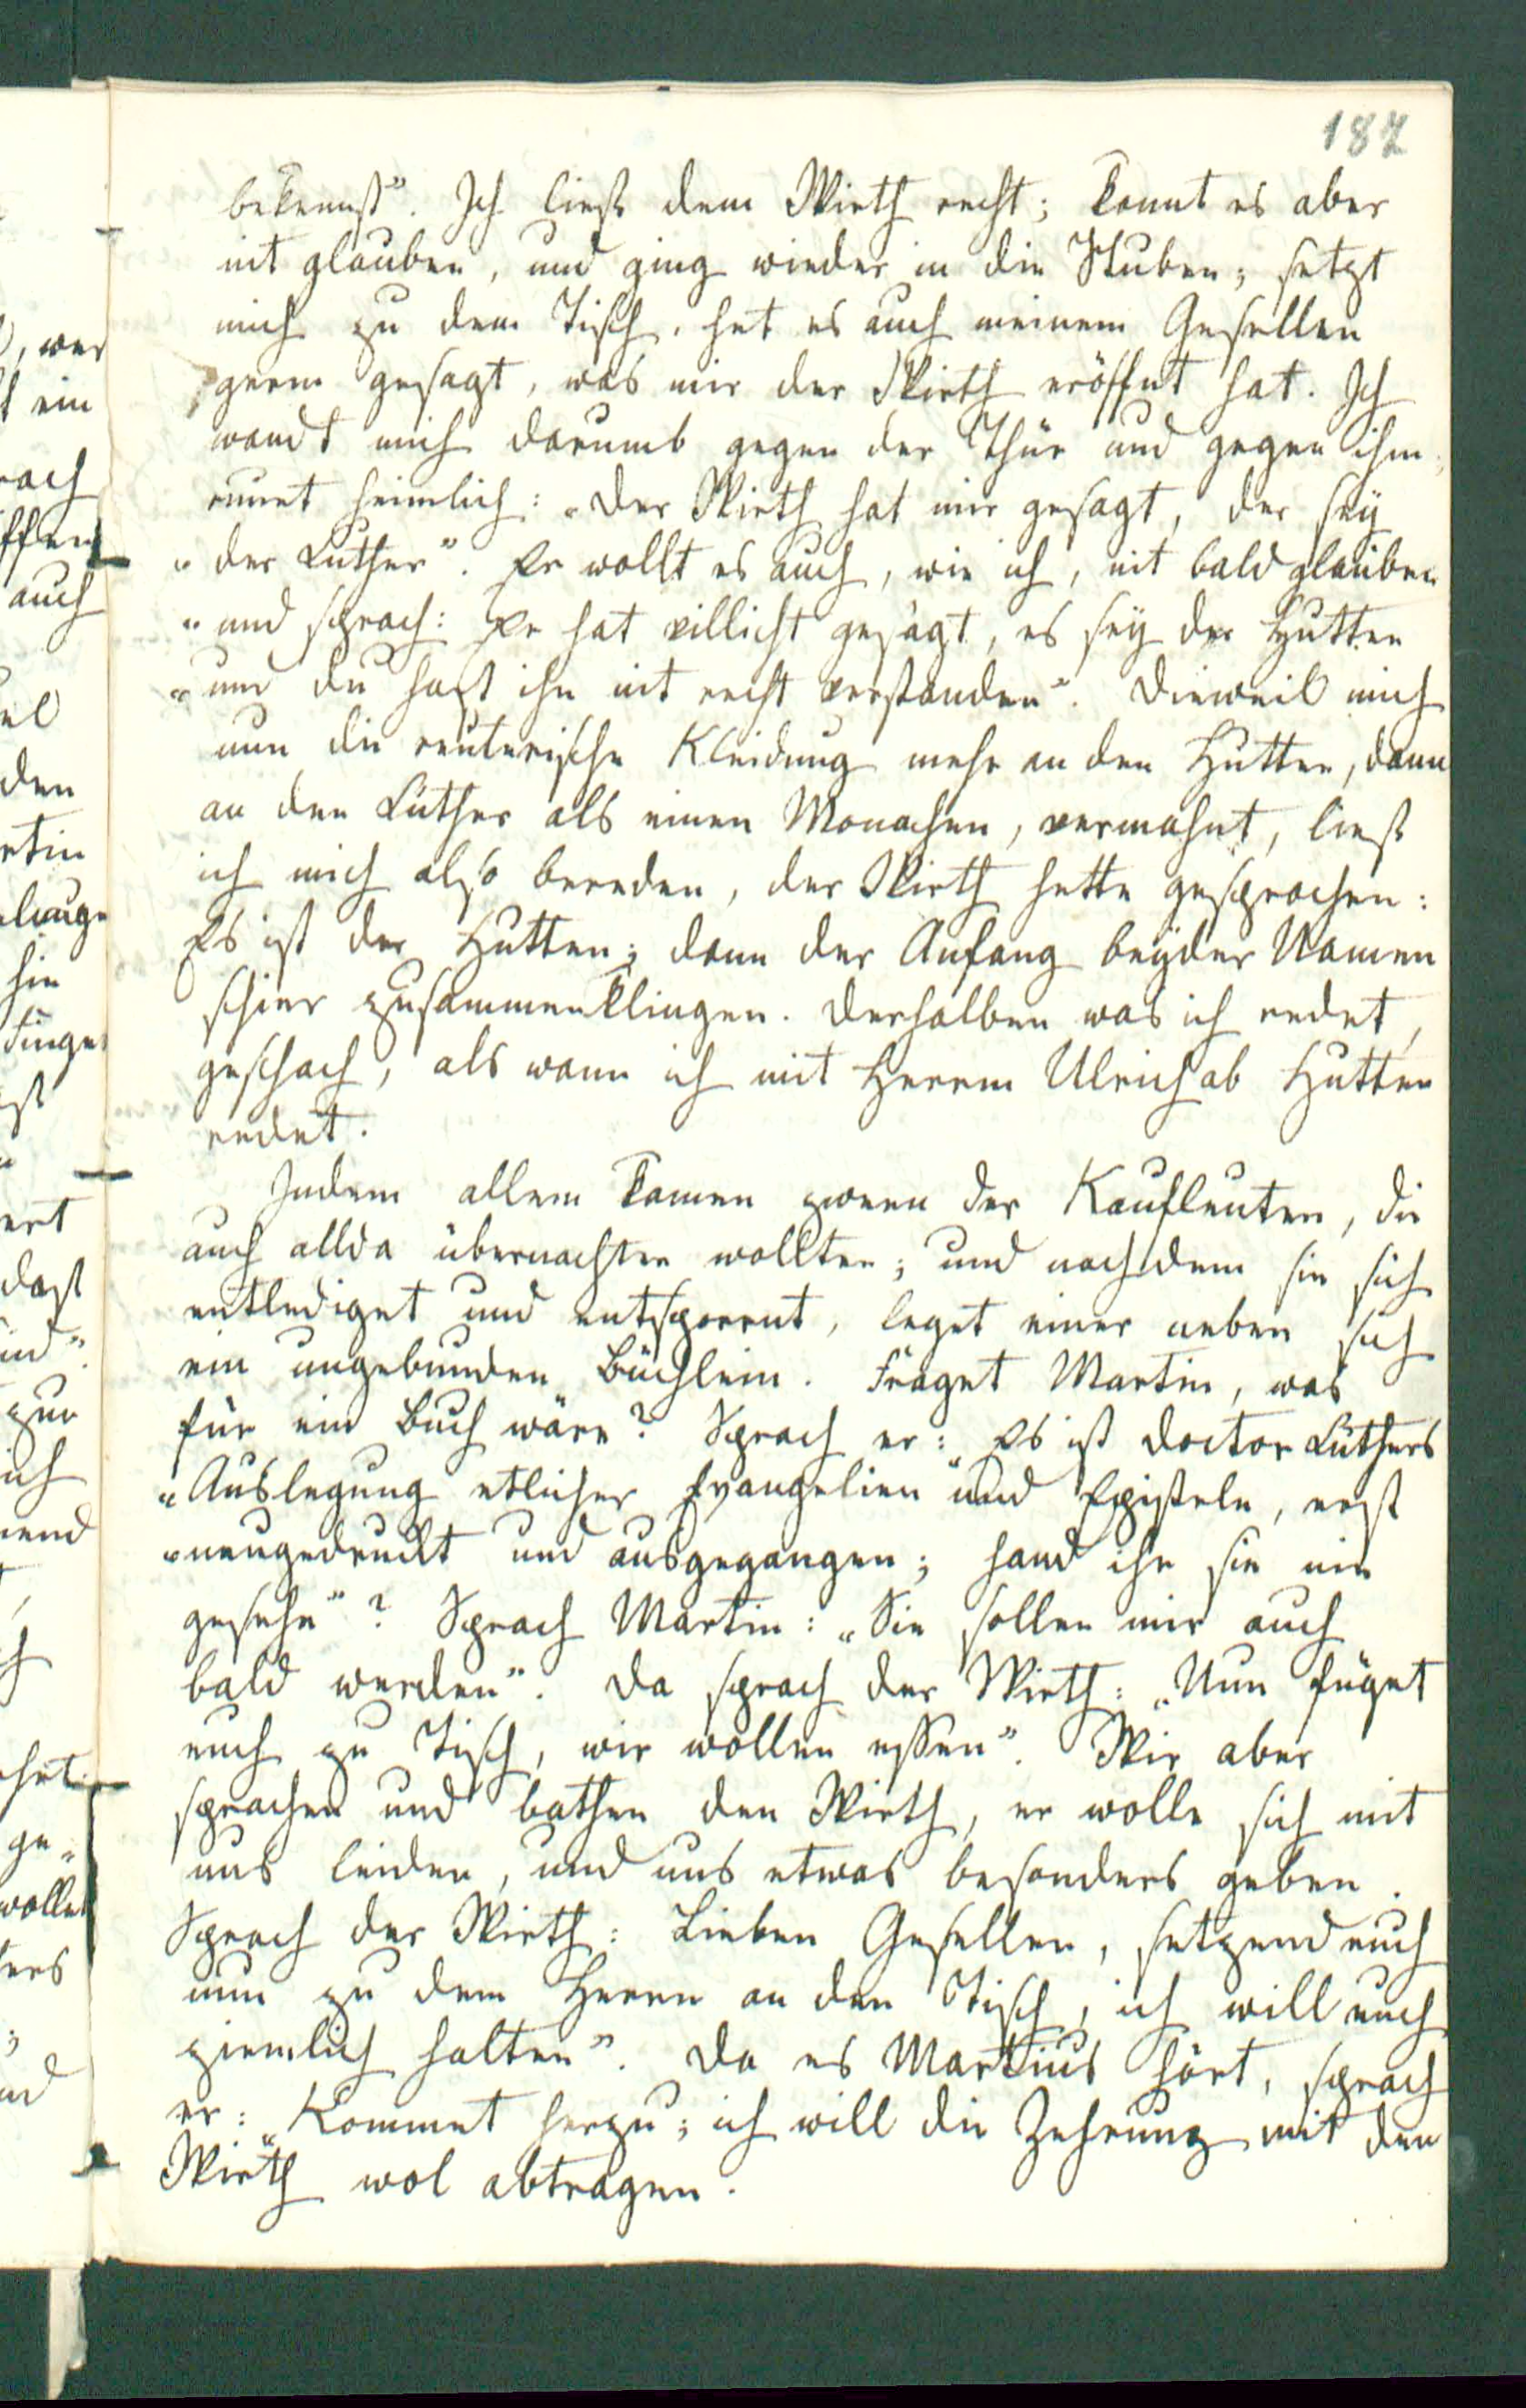 187
bekennst”. Ich ließ dem Wirth recht; konnt es aber
nit glauben, und ging wieder in die Stuben; setzt
mich zu dem Tisch, het es auch meinem Gesellen
gern gesagt, was mir der Wirth eröffnt hat. Ich
wandt mich darumb gegen der Thür und gegen ihm,
runet heimlich: „der Wirth hat mir gesagt, der sey
„der Luther”. Er wollt es auch, wie ich, nit bald glauben
„und sprach: Er hat villicht gesagt, es sey der Hutten
„und du hast ihn nit recht verstanden”. Dieweil mich
nun die reuterische Kleidung mehr an den Hutten, dann
an den Luther als einen Monachen, vermahnt, ließ
ich mich also bereden, der Wirth hette gesprochen:
Es ist der Hutten; dann der Anfang beyder Namen
schier zusammenklingen. Derhalben was ich redet,
geschach, als wann ich mit Herrn Ulrich ab Hutten
redet.
Indem allem kamen zween der Kaufleuten, die
auch allda übernachten wollten; und nachdem sie sich
entlediget und entsporent, leget einer neben sich
ein ungebunden Büchlein. Fraget Martin, was
für ein Buch wäre? Sprach er: „Es ist Doctor Luthers
„Auslegung etlicher Evangelien und Episteln, erst
„neugedruckt und ausgegangen; hand ihr sie nie
gesehn”? Sprach Martin: „Sie sollen mir auch
bald werden”. Da sprach der Wirth: „Nun füget
euch zu Tisch, wir wollen essen”. Wir aber
sprachen und bathen den Wirth, er wolle sich mit
uns leiden, und uns etwas besonders geben.
Sprach der Wirth: Lieben Gesellen, setzend euch
nun zu dem Herrn an den Tisch, ich will euch
ziemlich halten”. Da es Martinus hört, sprach
er: „Kommet herzu; ich will die Zehrung mit den
Wirth wol abtragen.